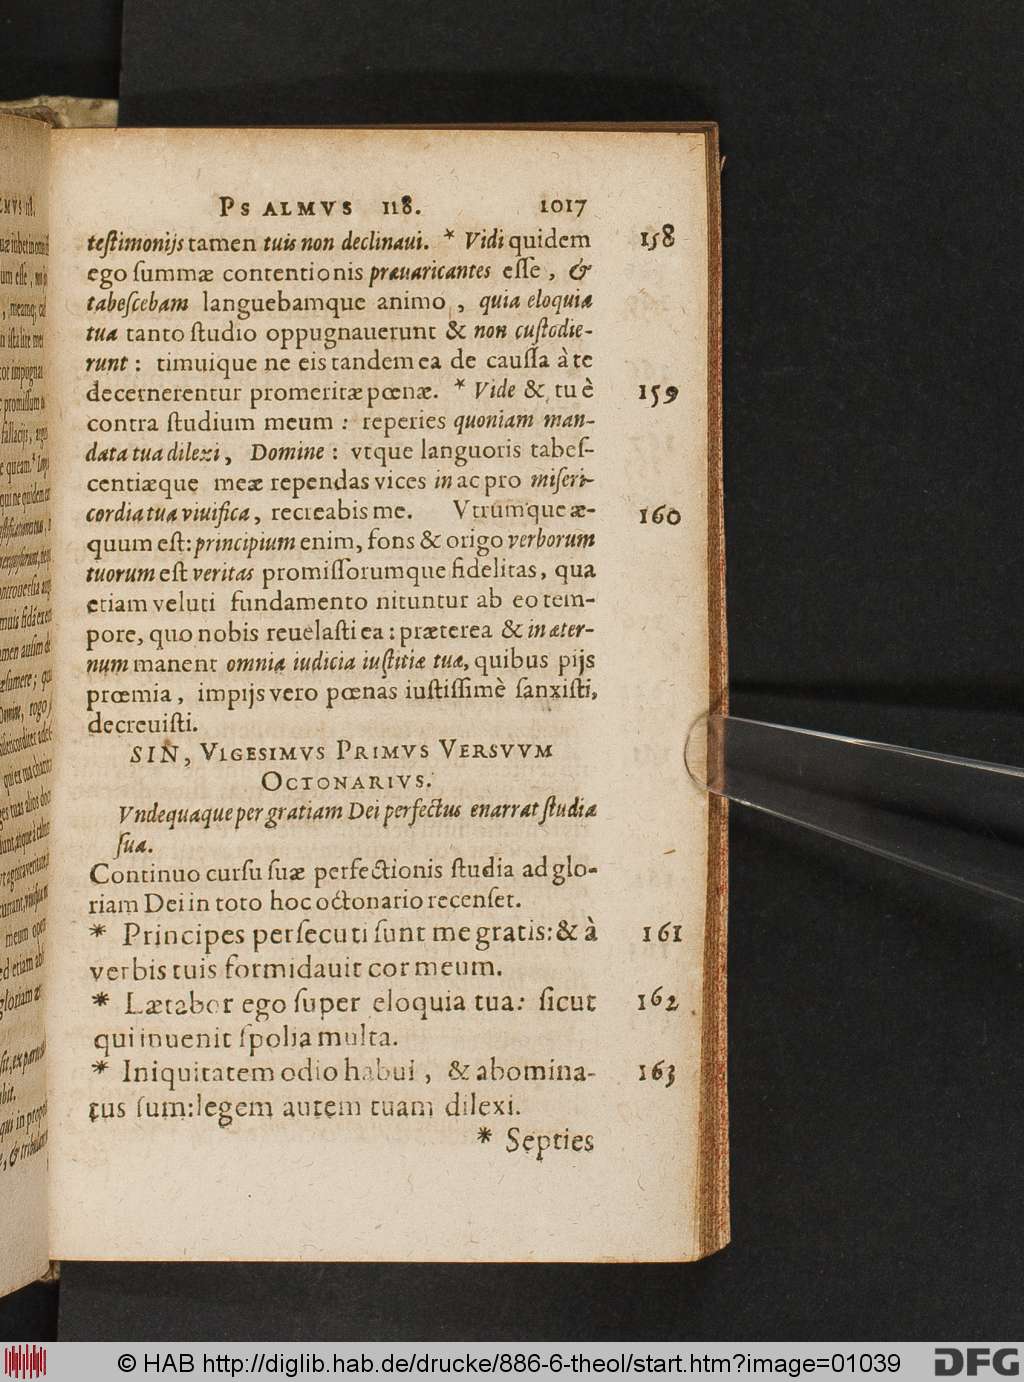 PSALMVS 118. 1017
testimonijs tamen tuis non declinaui. * Vidi quidem 158
ego summæ contentionis præuaricantes esse, &
tabescebam languebamque animo, quia eloquia
tua tanto studio oppugnauerunt & non custodie-
runt: timuique ne eis tandem ea de caussa à te
decernerentur promeritæ pœnæ. * Vide & tu è 159
contra studium meum: reperies quoniam man-
data tua dilexi, Domine: vtque languoris tabes-
centiæque meæ rependas vices in ac pro miseri-
cordia tua viuifica, recreabis me. Vtrumque æ- 160
quum est: principium enim, fons & origo verborum
tuorum est veritas promissorumque fidelitas, qua
etiam veluti fundamento nituntur ab eo tem-
pore, quo nobis reuelasti ea: præterea & in æter-
num manent omnia iudicia iustitiæ tuæ, quibus pijs
prœmia, impijs vero pœnas iustissimè sanxisti,
decreuisti.
SIN, VIGESIMVS PRIMVS VERSVVM
OCTONARIVS.
Vndequaque per gratiam Dei perfectus enarrat studia
sua.
Continuo cursu suæ perfectionis studia ad glo-
riam Dei in toto hoc octonario recenset.
* Principes persecuti sunt me gratis: & à 161
verbis tuis formidauit cor meum.
* Lætabor ego super eloquia tua: sicut 162
qui inuenit spolia multa.
* Iniquitatem odio habui, & abomina- 163
tus sum: legem autem tuam dilexi.
* Septies
© HAB http://diglib.hab.de/drucke/886-6-theol/start.htm?image=01039
DFG